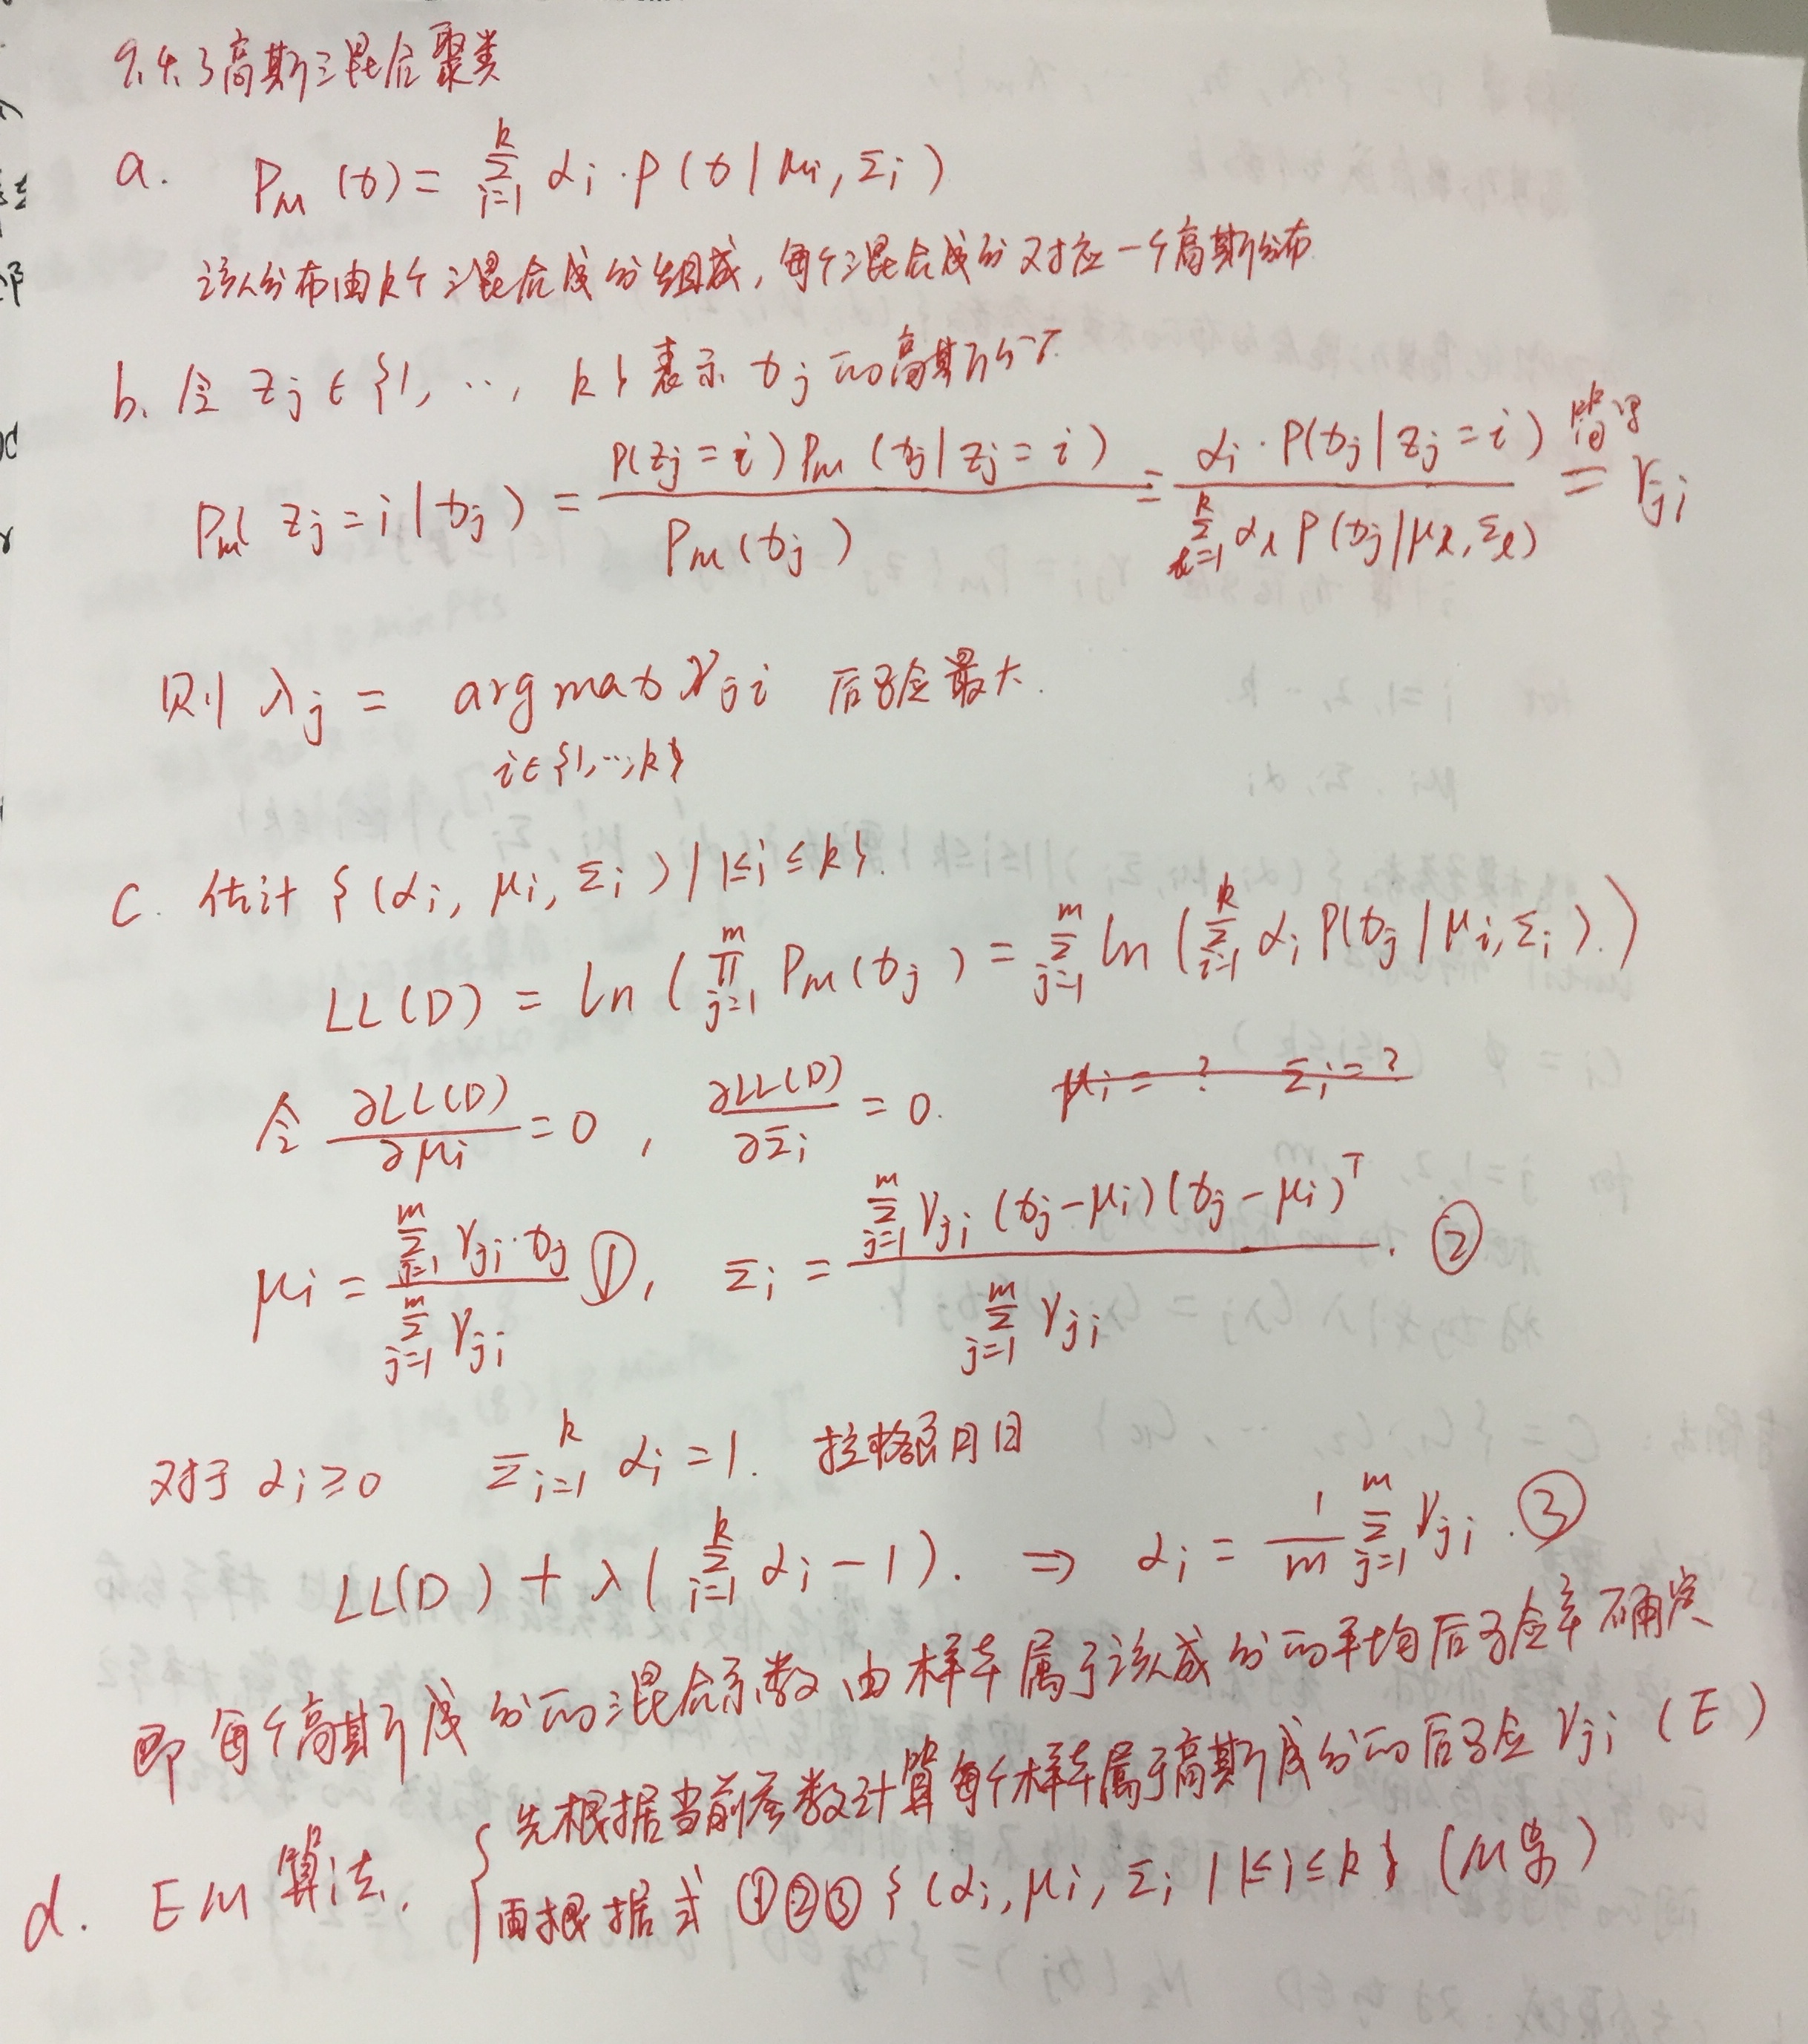 9.4.3 高斯混合聚类
a. P_M(x) = Σ_{i=1}^{k} α_i · P(x | μ_i, Σ_i)
该分布由k个混合成分组成, 每个混合成分对应一个高斯分布
b. 令 z_j ∈ {1, …, k} 表示 x_j 的高斯分布
P_M(z_j = i | x_j) = P(z_j = i) P_M(x_j | z_j = i) / P_M(x_j) = α_i · P(x_j | z_j = i) / Σ_{l=1}^{k} α_l P(x_j | μ_l, Σ_l) 简记 = γ_{ji}
则 λ_j = argmax γ_{ji} 后验最大.
i ∈ {1, …, k}
c. 估计 {(α_i, μ_i, Σ_i) | 1≤i≤k}.
LL(D) = ln ( Π_{j=1}^{m} P_M(x_j) = Σ_{j=1}^{m} ln ( Σ_{i=1}^{k} α_i P(x_j | μ_i, Σ_i).)
令 ∂LL(D)/∂μ_i = 0, ∂LL(D)/∂Σ_i = 0. μ_i = ? Σ_i = ?
μ_i = Σ_{j=1}^{m} γ_{ji} · x_j / Σ_{j=1}^{m} γ_{ji} ①, Σ_i = Σ_{j=1}^{m} γ_{ji} (x_j - μ_i)(x_j - μ_i)^T / Σ_{j=1}^{m} γ_{ji}. ②
对于 α_i ≥ 0 Σ_{i=1}^{k} α_i = 1. 拉格朗日
LL(D) + λ( Σ_{i=1}^{k} α_i - 1). ⇒ α_i = 1/m Σ_{j=1}^{m} γ_{ji}. ③
即 每个高斯成分的混合系数 由样本属于该成分的平均后验率确定
d. EM算法. { 先根据当前参数计算每个样本属于高斯成分的后验 γ_{ji} (E)
再根据式 ①②③ {(α_i, μ_i, Σ_i | 1≤i≤k} (M步)